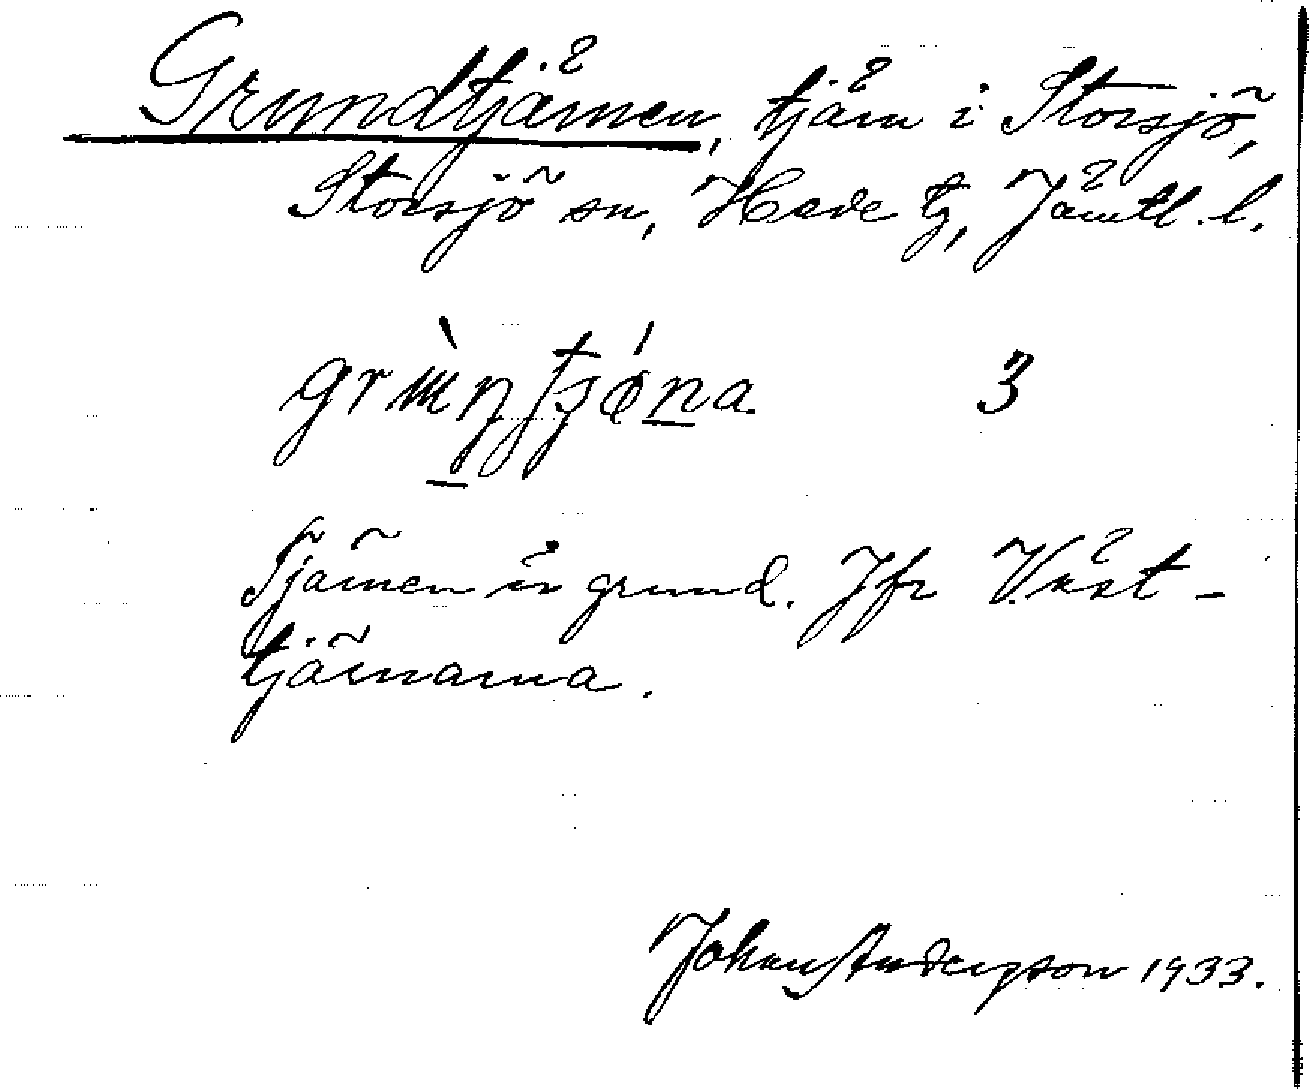 Grundtjärnen, tjärn i Storsjö,
Storsjö sn, Hede tg, Jämtl. l.
3
Tjärnen är grund. Jfr Väst-
tjärnarna.
Johan Anderson 1933.